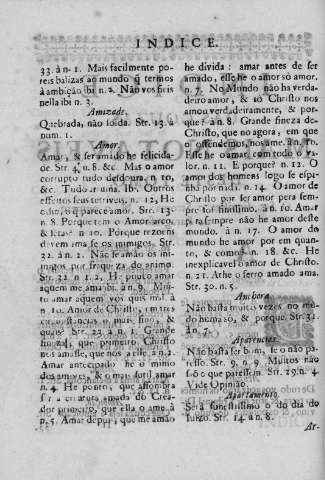 INDICE.
33. à n. 1. Mais facilmente po-
reis balizas ao mundo q̃ termos
à ambição ibi n. 2. Não vos fieis
nella ibi n. 3.
Amizade.
Quebrada, não solda. Str. 13. à
num. 1.
Amor.
Amar, & ser amado he felicida-
de. Str. 4. n. 8. &c. Mas o amor
corrupto tudo desdoura, n. 10,
&c. Tudo arruina. Ib. Outros
effeitos seus terriveis, n. 12, He
cudo, o q̃ parece amor. Str. 13.
n. 8. Porque tem o Amor arco,
& setas? n. 10. Porque rezoens
devem ama se os inimigos. Str.
32. à n. 2. Não se amão os ini-
migos por fraqueza do animo.
Str. 32 n 1. 2, He pouco amar
aquem me ama ibi à n. 9. Mui-
to amar aquem vos quis mal. à
n 10. Amor de Christo, em tres
circunstancias o mais fino, &
quais? Str. 23. à n. 1. Grande
fineza, que primeiro Christo
nos amasse, que nós a elle. à n. 2.
Amar antecipado he o mimo
dos amores, & o mais sutil amar
n 4. He ponto, que assombra
ser a criatura amada do Crea-
dor primeiro, que ella o ame. à
n. 5. Amar depois, que me ama-
he divida: amar antes de ser
amado, esse he o amor só amor.
n. 7. No Mundo não ha verda-
deiro amor, & só Christo nos
amou verdadeiramente, & por-
que? à n 8. Grande fineza de-
Christo, que no agora, em que
o offendemos, nos ame. à n. 10.
Esse he o amar com todo o ly-
bor. n. 11. E porque? n. 12. O
amor dos homens logo se espi-
nha por nada n. 14. O amor de
Christo por ser amor pera sem-
pre foi finissimo. à n. 16. Amar
pera sempre não he amor deste
mundo. à n. 17. O amor do
mundo he amor por em quan-
to, & como? n. 18. &c. He
inexplicavel o amor de Christo.
n. 21. Athe o ferro amado ama.
Str. 30. n. 5.
Anchora.
Não basta muitas vezes no mu-
do humano, & porque. Str. 31.
à n. 7.
Aparencias.
Não basta ser bom, se o não pa-
resse. Str. 9. n. 9. Muitos não
são o que paressem. Str. 29. n. 4
Vide Opinião.
Apartamento.
Será sensitissimo o do dia do
Juizo. Str. 14. à n. 8.
Ar-